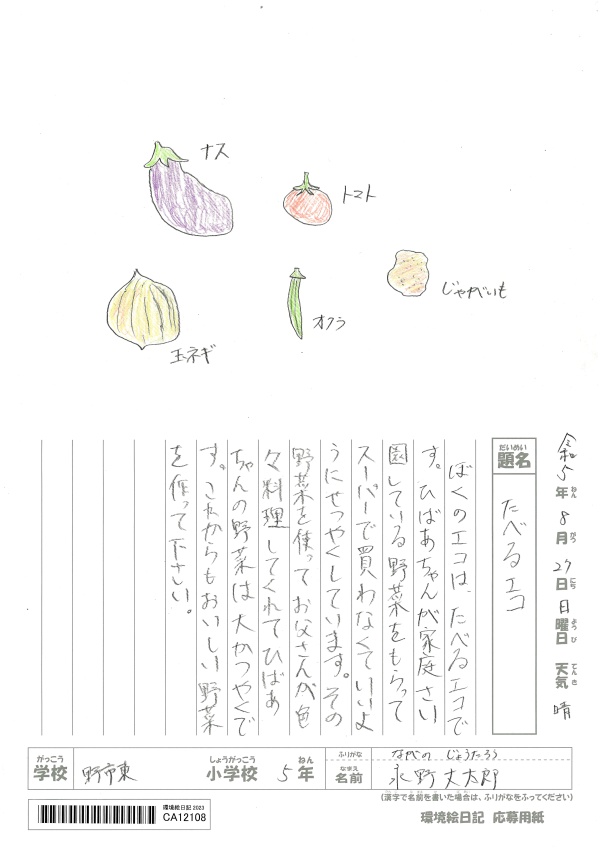 ナス
トマト
じゃがいも
オクラ
玉ネギ
令和5年ねん8月がつ27日にち日曜日ようび天気てんき晴
だいめい
題名
たべるエコ
ぼくのエコは、たべるエコで
す。ひばあちゃんが家庭さい
園している野菜をもらって
スーパーで買わなくていいよ
うにせつやくしています。その
野菜を使ってお父さんが色
々料理してくれてひばあ
ちゃんの野菜は大かつやくで
す。これからもおいしい野菜
を作って下さい。
がっこう
学校
野市東
しょうがっこう
小学校
5
ねん
年
ふりがな
ながの じょうたろう
なまえ
名前
永野丈太郎
(漢字で名前を書いた場合は、ふりがなをふってください)
環境絵日記 2023
CA12108
環境絵日記 応募用紙